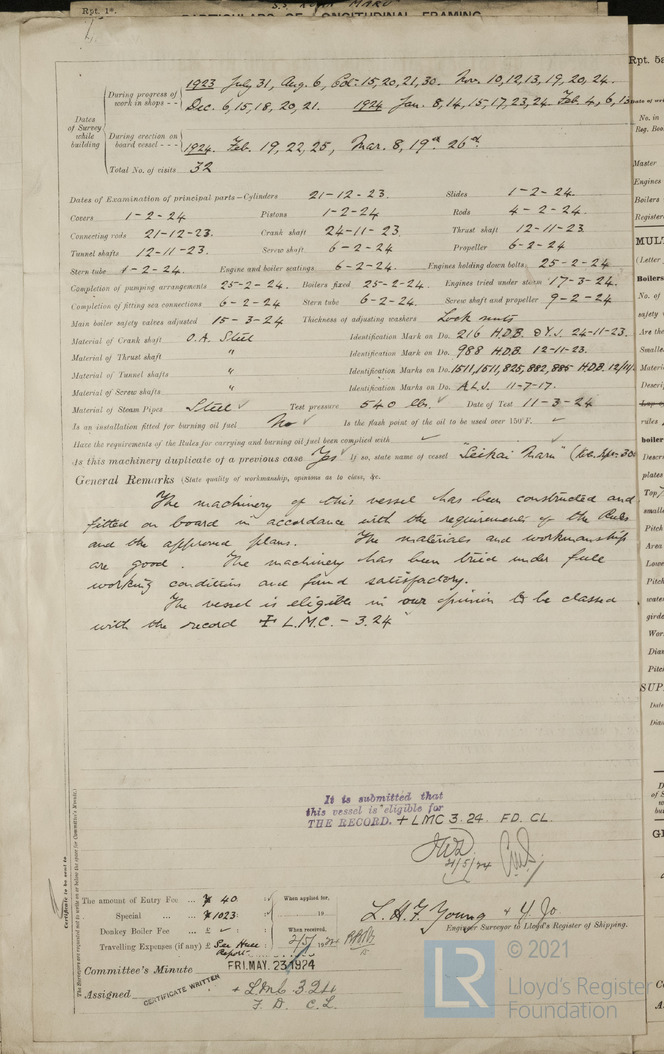 Rpt. 1*.
PARTICULARS OF LONGITUDINAL FRAMING
Rpt. 5a
Dates of Survey while building
During progress of work in shops - -
1923 July 31, Aug. 6, Oct. 15, 20, 21, 30. Nov. 10, 12, 13, 19, 20, 24.
Dec. 6, 15, 18, 20, 21. 1924 Jan. 8, 14, 15, 17, 23, 24. Feb. 4, 6, 13
During erection on board vessel - - -
1924. Feb. 19, 22, 25, Mar. 8, 19th 26th.
Total No. of visits 32
Dates of Examination of principal parts—Cylinders 21-12-23. Slides 1-2-24.
Covers 1-2-24 Pistons 1-2-24 Rods 4-2-24.
Connecting rods 21-12-23. Crank shaft 24-11-23. Thrust shaft 12-11-23.
Tunnel shafts 12-11-23. Screw shaft 6-2-24 Propeller 6-2-24
Stern tube 1-2-24. Engine and boiler seatings 6-2-24. Engines holding down bolts 25-2-24
Completion of pumping arrangements 25-2-24. Boilers fixed 25-2-24. Engines tried under steam 17-3-24.
Completion of fitting sea connections 6-2-24. Stern tube 6-2-24. Screw shaft and propeller 9-2-24
Main boiler safety valves adjusted 15-3-24 Thickness of adjusting washers Lock nuts
Material of Crank shaft O.H. Steel Identification Mark on Do. 216 H.D.B. & Y.J. 24-11-23.
Material of Thrust shaft " Identification Mark on Do. 988 H.D.B. 12-11-23.
Material of Tunnel shafts " Identification Marks on Do. 1511, 1511, 825, 882, 885 H.D.B. 12/11/
Material of Screw shafts " Identification Marks on Do. A.L.J. 11-7-17.
Material of Steam Pipes Steel ✓ Test pressure 540 lbs. ✓ Date of Test 11-3-24
Is an installation fitted for burning oil fuel No ✓ Is the flash point of the oil to be used over 150°F. ✓
Have the requirements of the Rules for carrying and burning oil fuel been complied with ✓ ✓
Is this machinery duplicate of a previous case Yes ✓ If so, state name of vessel "Seikai Maru"
General Remarks (State quality of workmanship, opinions as to class, &c.
The machinery of this vessel has been constructed and
fitted on board in accordance with the requirements of the Rules
and the approved plans. The materials and workmanship
are good. The machinery has been tried under full
working conditions and found satisfactory.
The vessel is eligible in our opinion to be classed
with the record + L.M.C. – 3.24
It is submitted that
this vessel is eligible for
THE RECORD. + LMC 3.24. FD. CL.
21/5/24
Certificate to be sent to
(The Surveyors are requested not to write on or below the space for Committee's Minute.)
The amount of Entry Fee ... ¥ 40 : When applied for,
Special ... ... ¥ 1023 : 19
Donkey Boiler Fee ... £ ✓ : When received,
Travelling Expenses (if any) £ See Hull Report
L. H. F. Young & Y. Jo
Engineer Surveyor to Lloyd's Register of Shipping.
Committee's Minute FRI. MAY. 23 1924
Assigned + LMC 3.24
F. D. C. L.
CERTIFICATE WRITTEN
© 2021
LR
Lloyd's Register
Foundation